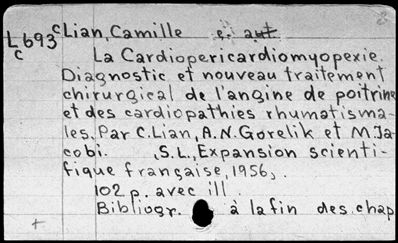 L693 c Lian, Camille e. aut
c La Cardiopericardiomyopexie.
Diagnostic et nouveau traitement
chirurgical de l'angine de poitrine
et des cardiopathies rhumatisma-
les. Par C. Lian, A.N. Gorelik et M. Ja-
cobi. , S.L., Expansion scienti-
fique française, 1956, .
102 p. avec ill.
Bibliogr. à la fin des chap